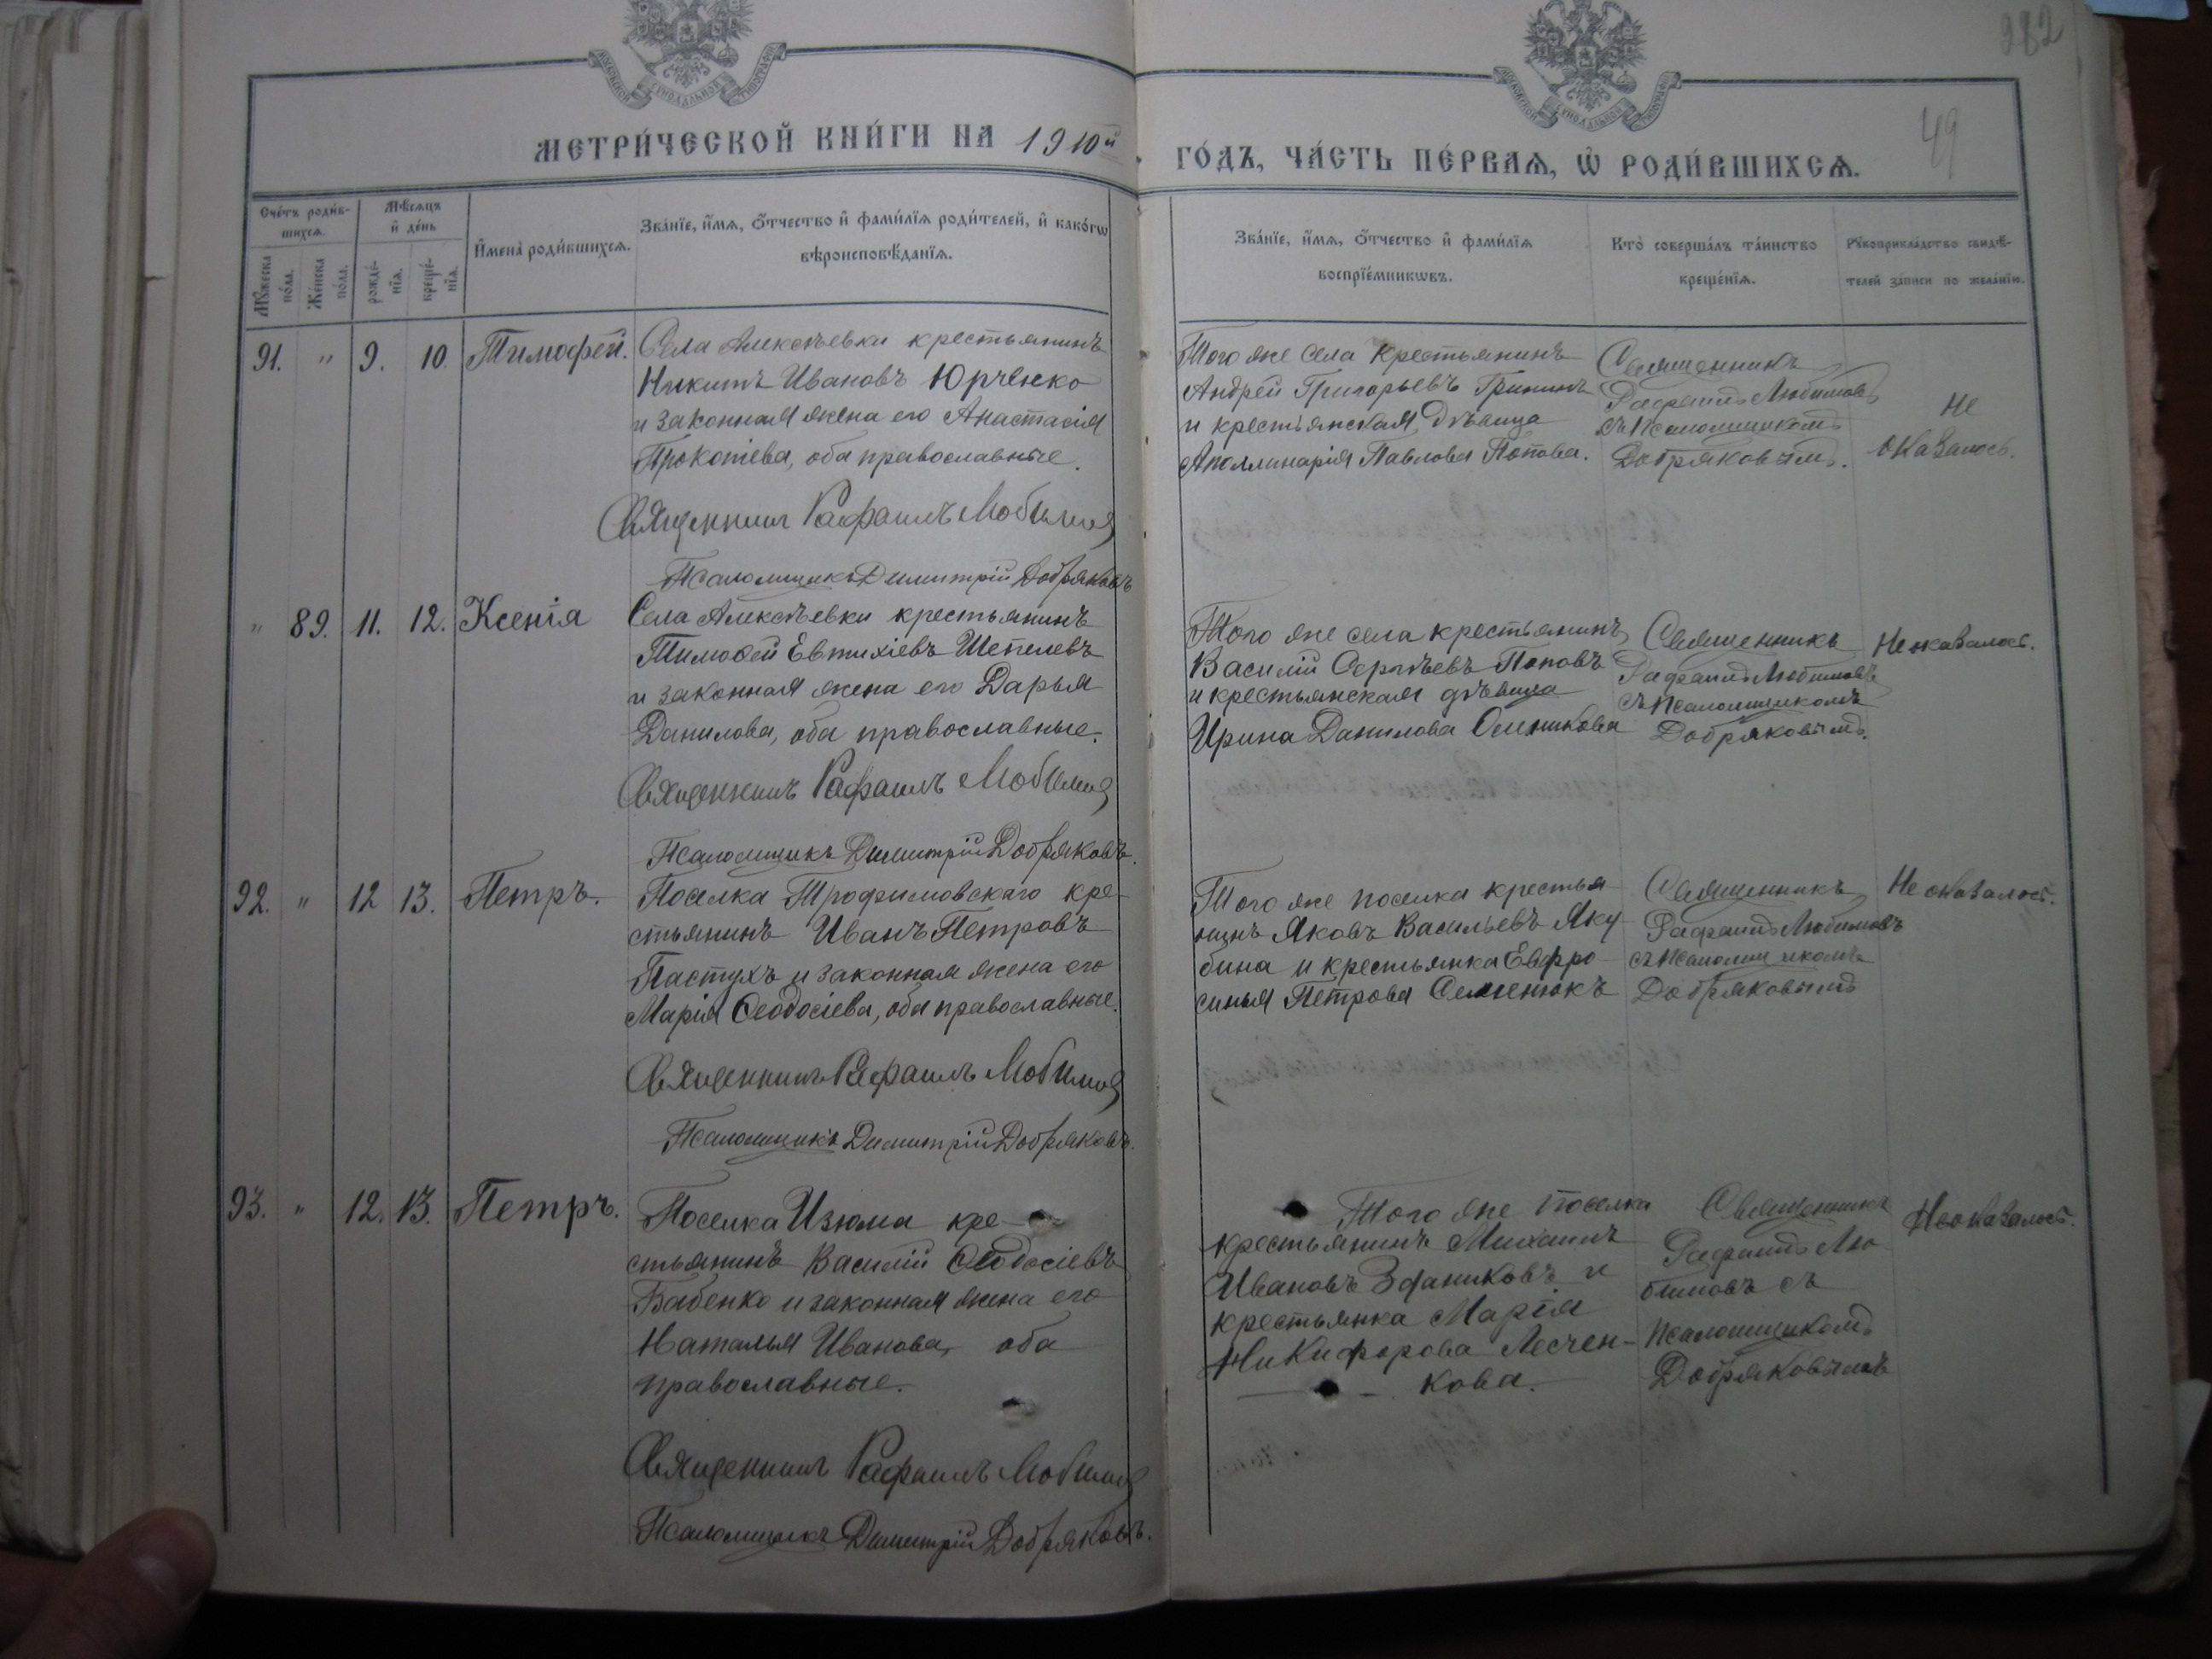 282
49
МОСКОВСКОЙ СѴНОДАЛЬНОЙ ТИПОГРАФІИ
МОСКОВСКОЙ СѴНОДАЛЬНОЙ ТИПОГРАФІИ
МЕТРИ́ЧЕСКОЙ КНИ́ГИ НА 1910й
ГО́ДЪ, ЧА́СТЬ ПЕ́РВАѦ, Ѡ҆ РОДИ́ВШИХСѦ.
Сче́тъ роди́в-
шихсѧ.
Мꙋ́жеска
по́ла.
Же́нска
по́ла.
Мѣ́сѧцъ
и҆ де́нь
рожде́-
нїѧ.
креще́-
нїѧ.
И҆мена̀ роди́вшихсѧ.
Зва́нїе, и҆́мѧ, ѻ҆́тчество и҆ фами́лїѧ роди́телей, и҆ како́гѡ
вѣроисповѣ́данїѧ.
Зва́нїе, и҆́мѧ, ѻ҆́тчество и҆ фами́лїѧ
воспрїе́мникѡвъ.
Кто̀ соверша́лъ та́инство
креще́нїѧ.
Рꙋкоприкла́дство свидѣ́-
телей за́писи по жела́нїю.
91. " 9. 10. Тимофей.
Села Алексѣевки крестьянинъ
Никита Ивановъ Юрченко
и законная жена его Анастасія
Прокопіева, оба православные.
Священникъ Рафаилъ Любимов
Псаломщикъ Димитрій Добряковъ
Того же села крестьянинъ
Андрей Григорьевъ
и крестьянская дѣвица
Аполлинарія Павлова Попова.
Священникъ
Рафаилъ Любимовъ
съ псаломщикомъ
Добряковымъ.
Не
оказалось.
" 89. 11. 12. Ксенія
Села Алексѣевки крестьянинъ
Тимоѳей Евтихіевъ Шепелевъ
и законная жена его Дарья
Данилова, оба православные.
Священникъ Рафаилъ Любимов
Псаломщикъ Димитрій Добряковъ.
Того же села крестьянинъ
Василій Сергѣевъ Поповъ
и крестьянская дѣвица
Ирина Данилова
Священникъ
Рафаилъ Любимовъ
съ псаломщикомъ
Добряковымъ.
Не оказалось.
92. " 12 13. Петръ.
Поселка Трофимовскаго кре-
стьянинъ Иванъ Петровъ
Пастухъ и законная жена его
Марія Ѳеодосіева, оба православные.
Священникъ Рафаилъ Любимов
Псаломщикъ Димитрій Добряковъ.
Того же поселка крестья-
нинъ Яковъ Васильевъ Яку-
бина и крестьянка Евфро-
синья Петрова Семенюкъ
Священникъ
Рафаилъ Любимовъ
съ псаломщикомъ
Добряковымъ
Не оказалось.
93. " 12. 13. Петръ.
Поселка Изюма кре-
стьянинъ Василій Ѳеодосіевъ
Бабенко и законная жена его
Наталья Иванова, оба
православные.
Священникъ Рафаилъ Любимов
Псаломщикъ Димитрій Добряковъ.
Того же поселка
крестьянинъ Михаилъ
Ивановъ Зданиковъ и
крестьянка Марія
Никифорова Лесчен-
кова.
Священникъ
Рафаилъ Лю-
бимовъ съ
псаломщикомъ
Добряковымъ
Не оказалось.